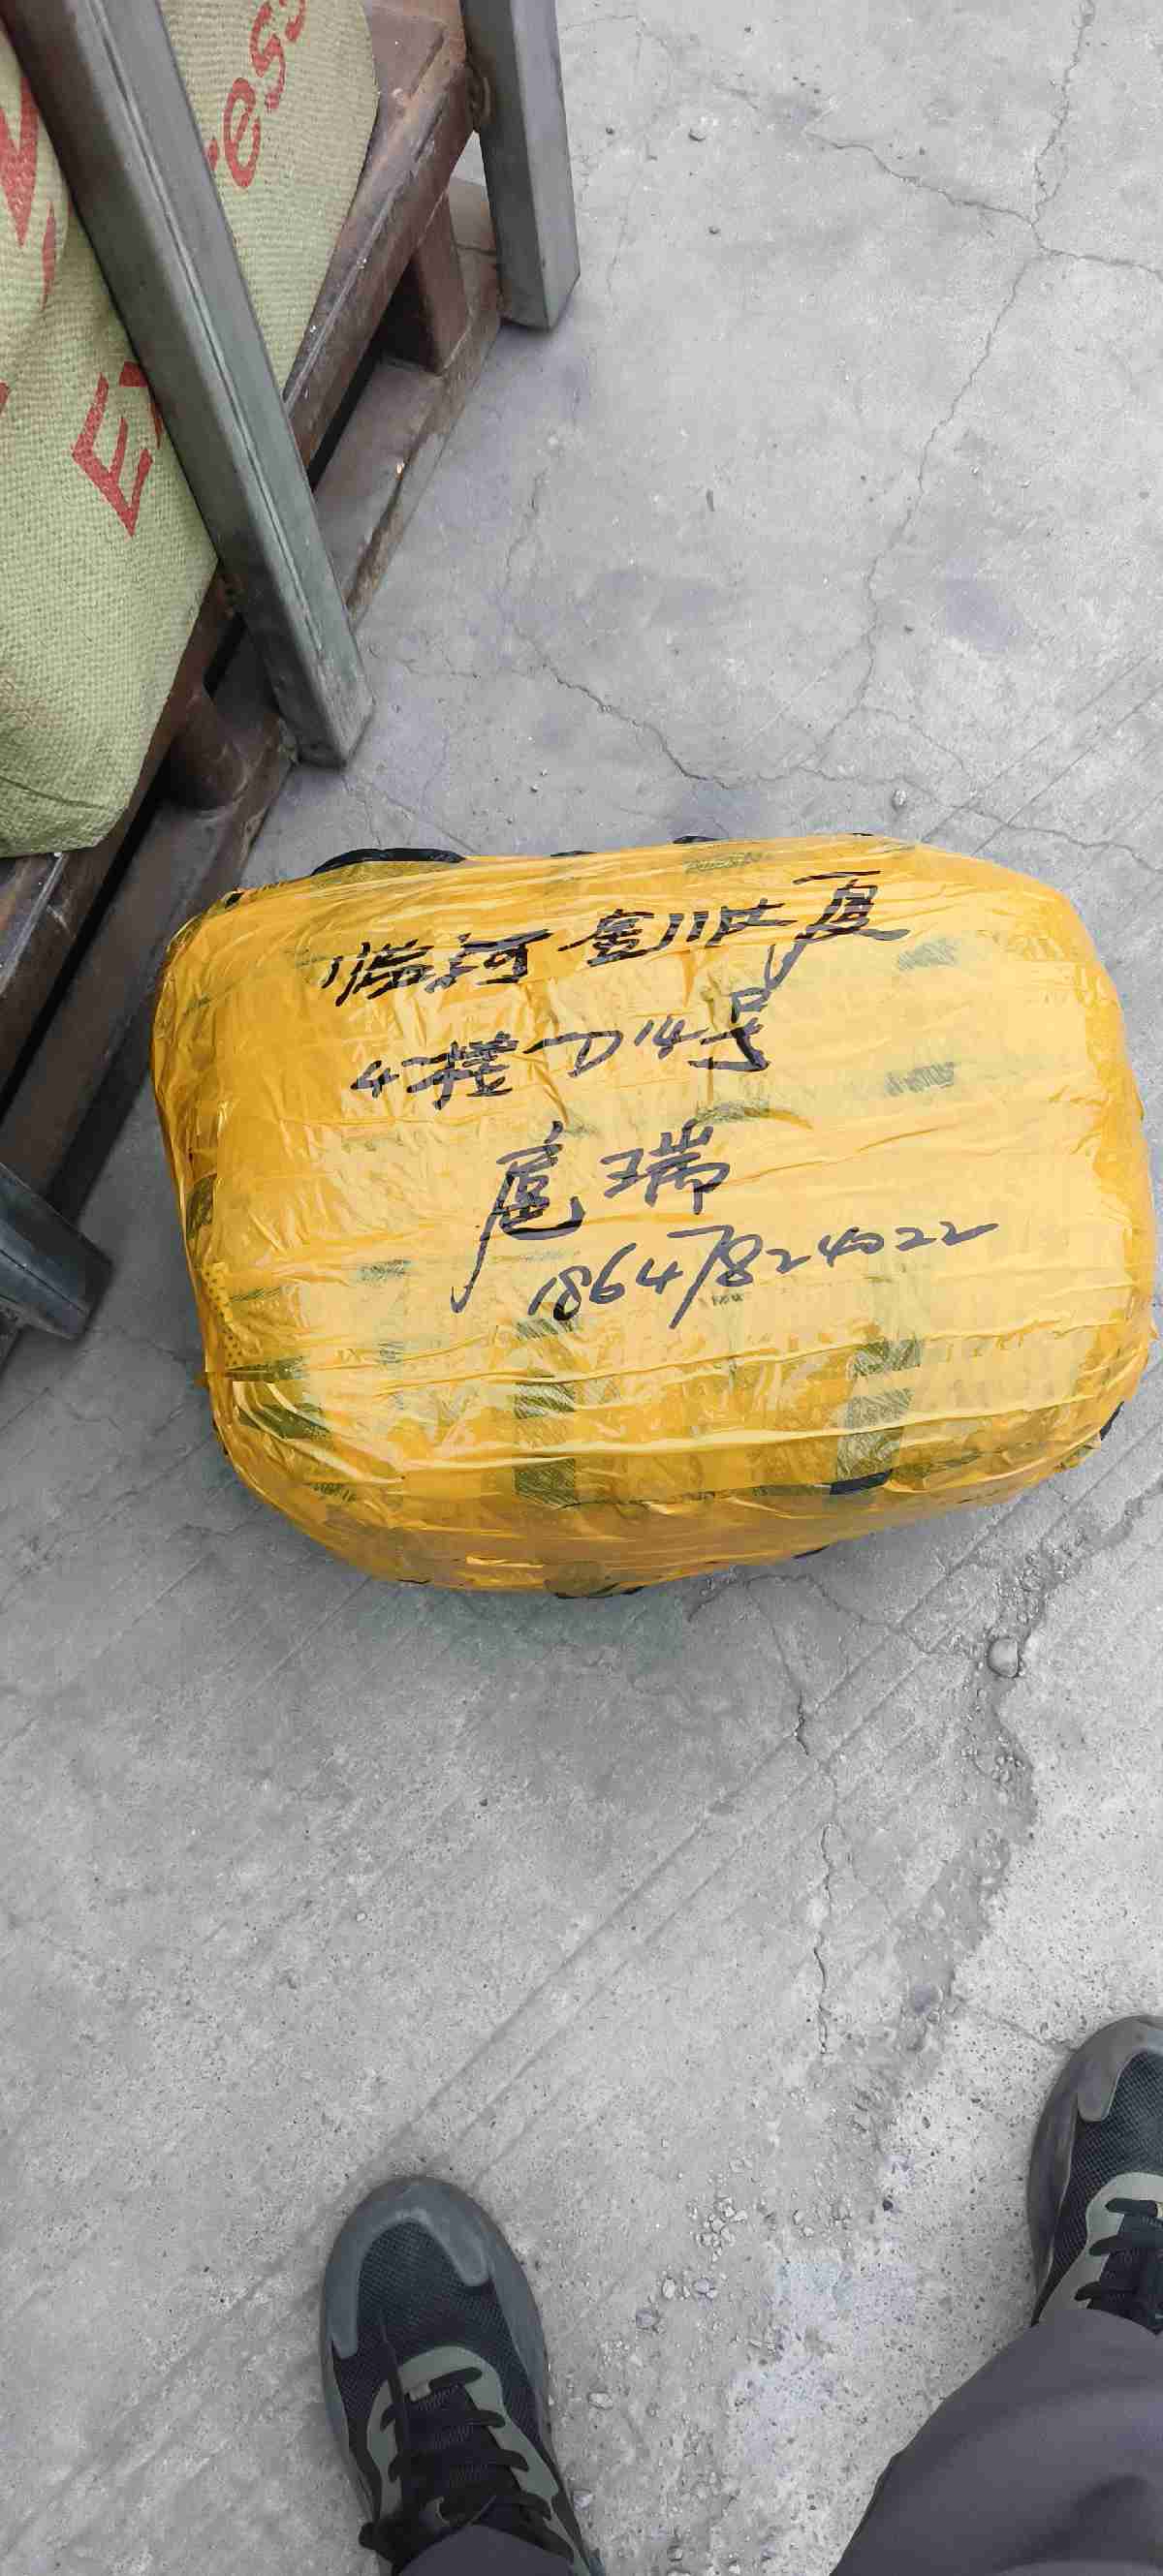 ess
Ex
临河金川大厦
4楼D14号
扈瑞
18647824022